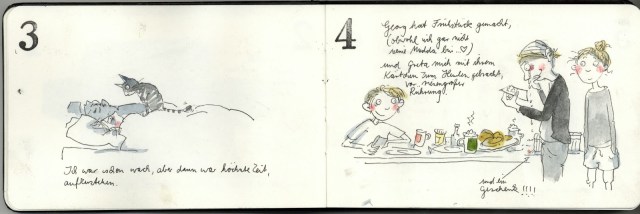 3
Ich war schon wach, aber dann war höchste Zeit,
aufzustehen.
4
Georg hat Frühstück gemacht,
(obwohl ich gar nicht
seine Madda bin..♡)
und Greta mich mit ihrem
Kärtchen zum Heulen gebracht,
vor riesengroßer
Rührung.
und ein
Geschenk!!!!